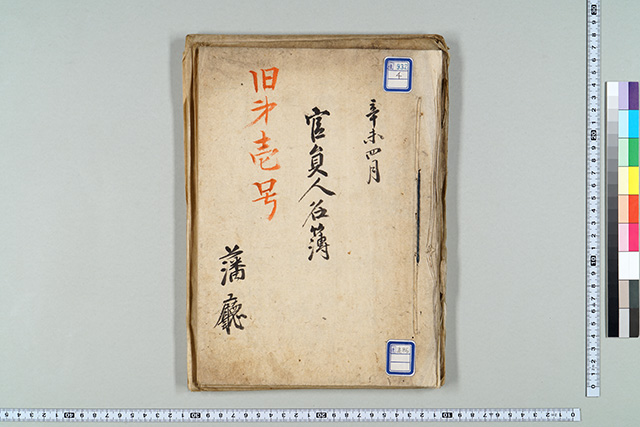 辛未四月
官員人名簿
旧第壱号
藩廳
4